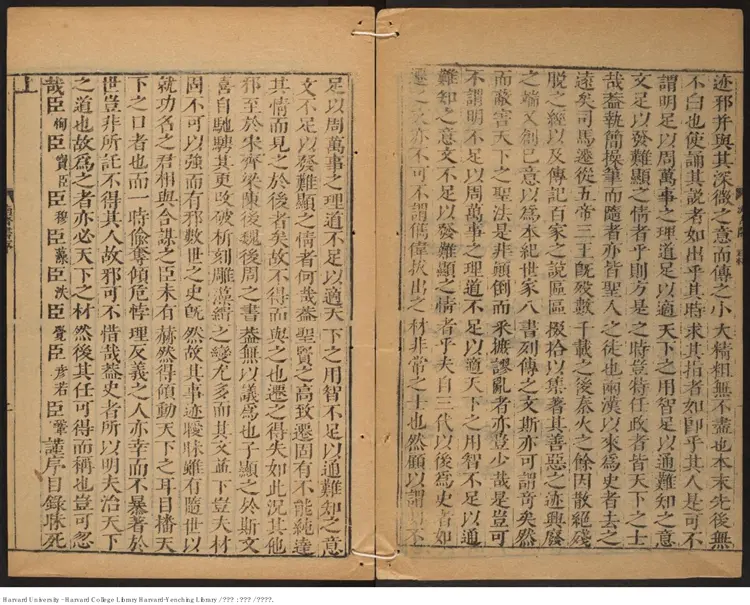 迹邪并與其深微之意而傳之小大精粗無不盡也本末先後無
不白也使誦其說者如出乎其時求其指者如即乎其人是可不
謂明足以周萬事之理道足以適天下之用智足以通難知之意
文足以發難顯之情者乎則方是之時豈特任政者皆天下之士
哉蓋執簡操筆而隨者亦皆聖人之徒也兩漢以來爲史者去之
遠矣司馬遷從五帝三王既歿數千載之後秦火之餘因散絕殘
脫之經以及傳記百家之說區區掇拾以集著其善惡之迹興廢
之端又創己意以爲本紀世家八書列傳之文斯亦可謂奇矣然
而蔽害天下之聖法是非顛倒而采摭謬亂者亦豈少哉是豈可
不謂明不足以周萬事之理道不足以適天下之用智不足以通
難知之意文不足以發難顯之情者乎夫自三代以後爲史者如
遷之文亦不可不謂儁偉拔出之材非常之士也然顧以謂明不
足以周萬事之理道不足以適天下之用智不足以通難知之意
文不足以發難顯之情者何哉蓋聖賢之高致遷固有不能純達
其情而見之於後者矣故不得而與之也遷之得失如此況其他
邪至於宋齊梁陳後魏後周之書蓋無以議爲也子顯之於斯文
喜自馳騁其更改破析刻雕藻繢之變尤多而其文益下豈夫材
固不可以強而有邪數世之史既然故其事迹曖昧雖有隨世以
就功名之君相與合謀之臣未有赫然得傾動天下之耳目播天
下之口者也而一時偷奪傾危悖理反義之人亦幸而不暴著於
世豈非所託不得其人故邪可不惜哉蓋史者所以明夫治天下
之道也故爲之者亦必天下之材然後其任可得而稱也豈可忽
哉臣恂臣寶臣臣穆臣藻臣洙臣覺臣彥若臣鞏謹序目錄昧死
上
Harvard University - Harvard College Library Harvard-Yenching Library / ??? ; ??? / ????.